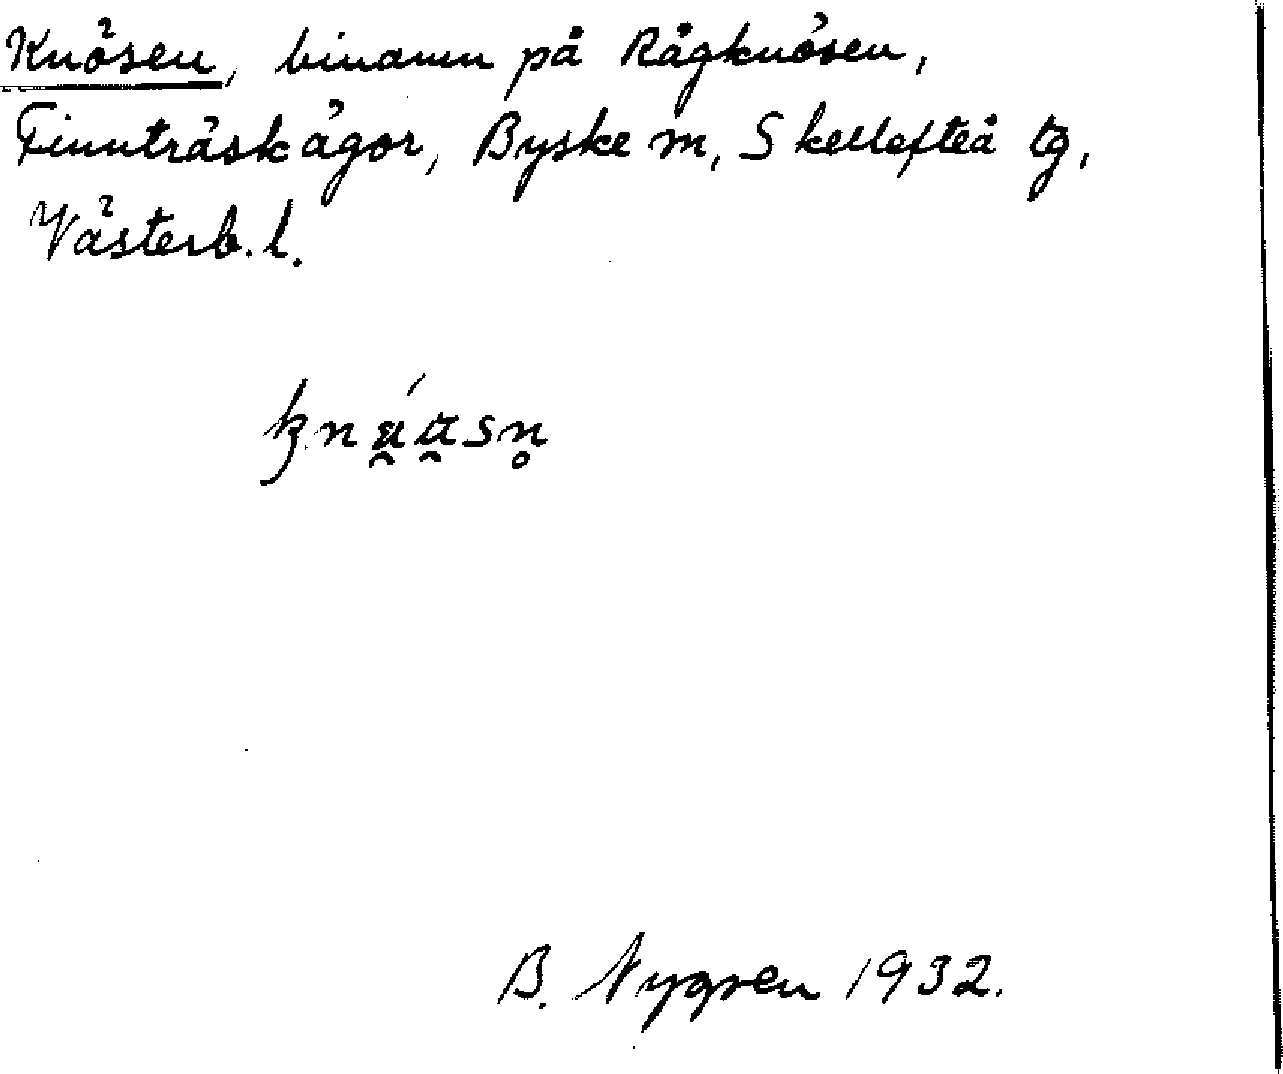 Knösen, binamn på Rågknösen,
Finnträskägor, Byske m, Skellefteå tg,
Västerb. l.
B. Nygren 1932.